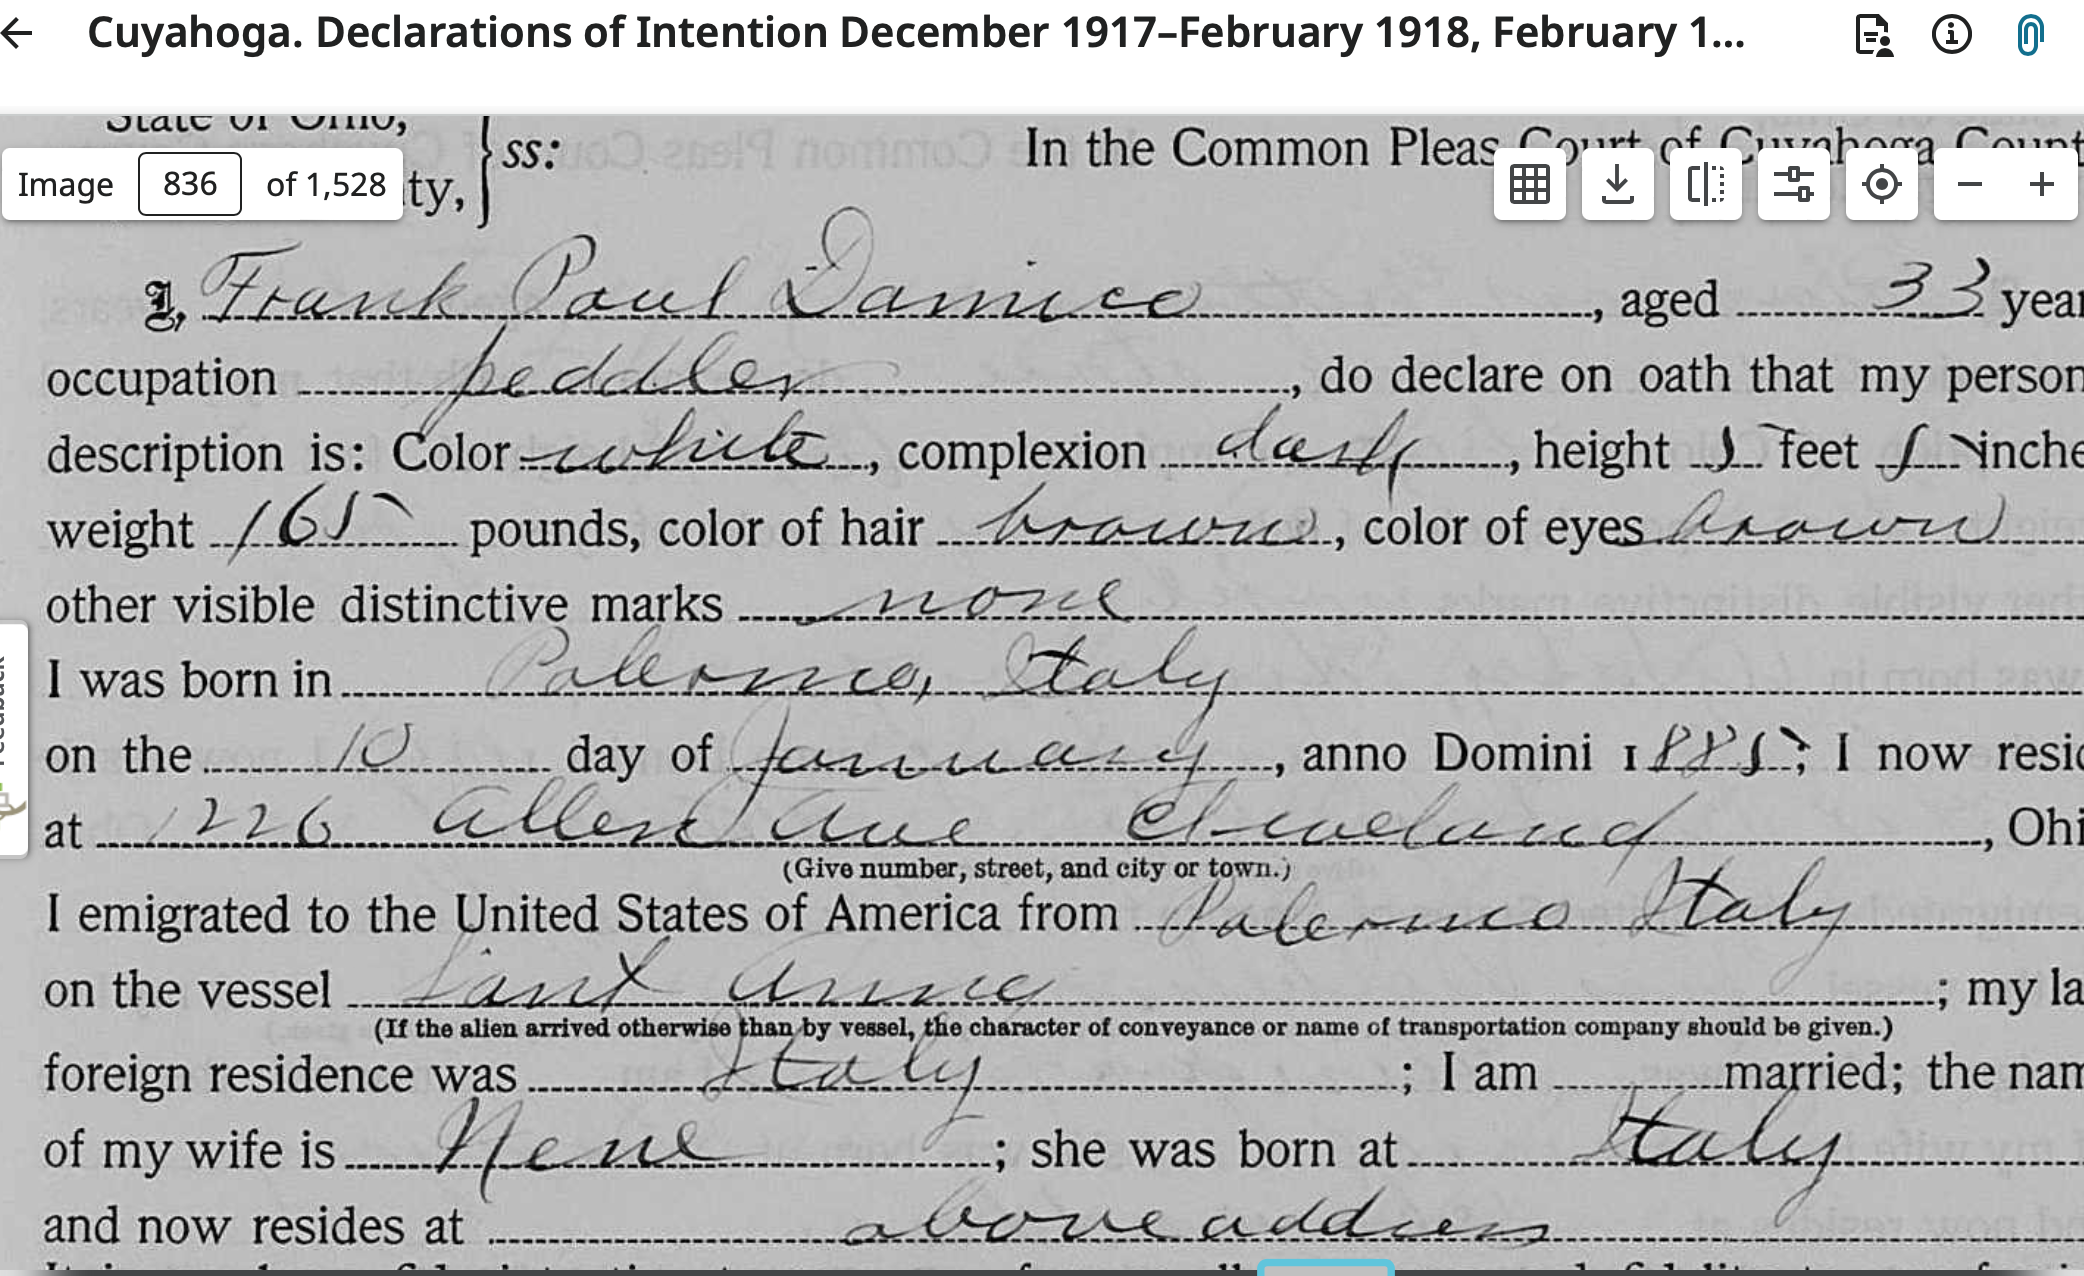 Cuyahoga. Declarations of Intention December 1917–February 1918, February 1...
State of Ohio,
ss: In the Common Pleas Court of Cuyahoga Count
Image 836 of 1,528
ty,
I, Frank Paul Damico, aged 33 year
occupation peddler, do declare on oath that my person
description is: Color white, complexion dark, height 5 feet 5 inche
weight 165 pounds, color of hair brown, color of eyes brown
other visible distinctive marks none
I was born in Palermo, Italy
on the 10 day of January, anno Domini 1885; I now resid
at 1226 Allen Ave Cleveland, Ohi
(Give number, street, and city or town.)
I emigrated to the United States of America from Palermo Italy
on the vessel Sant Anna; my la
(If the alien arrived otherwise than by vessel, the character of conveyance or name of transportation company should be given.)
foreign residence was Italy; I am married; the nam
of my wife is; she was born at Italy
and now resides at above address